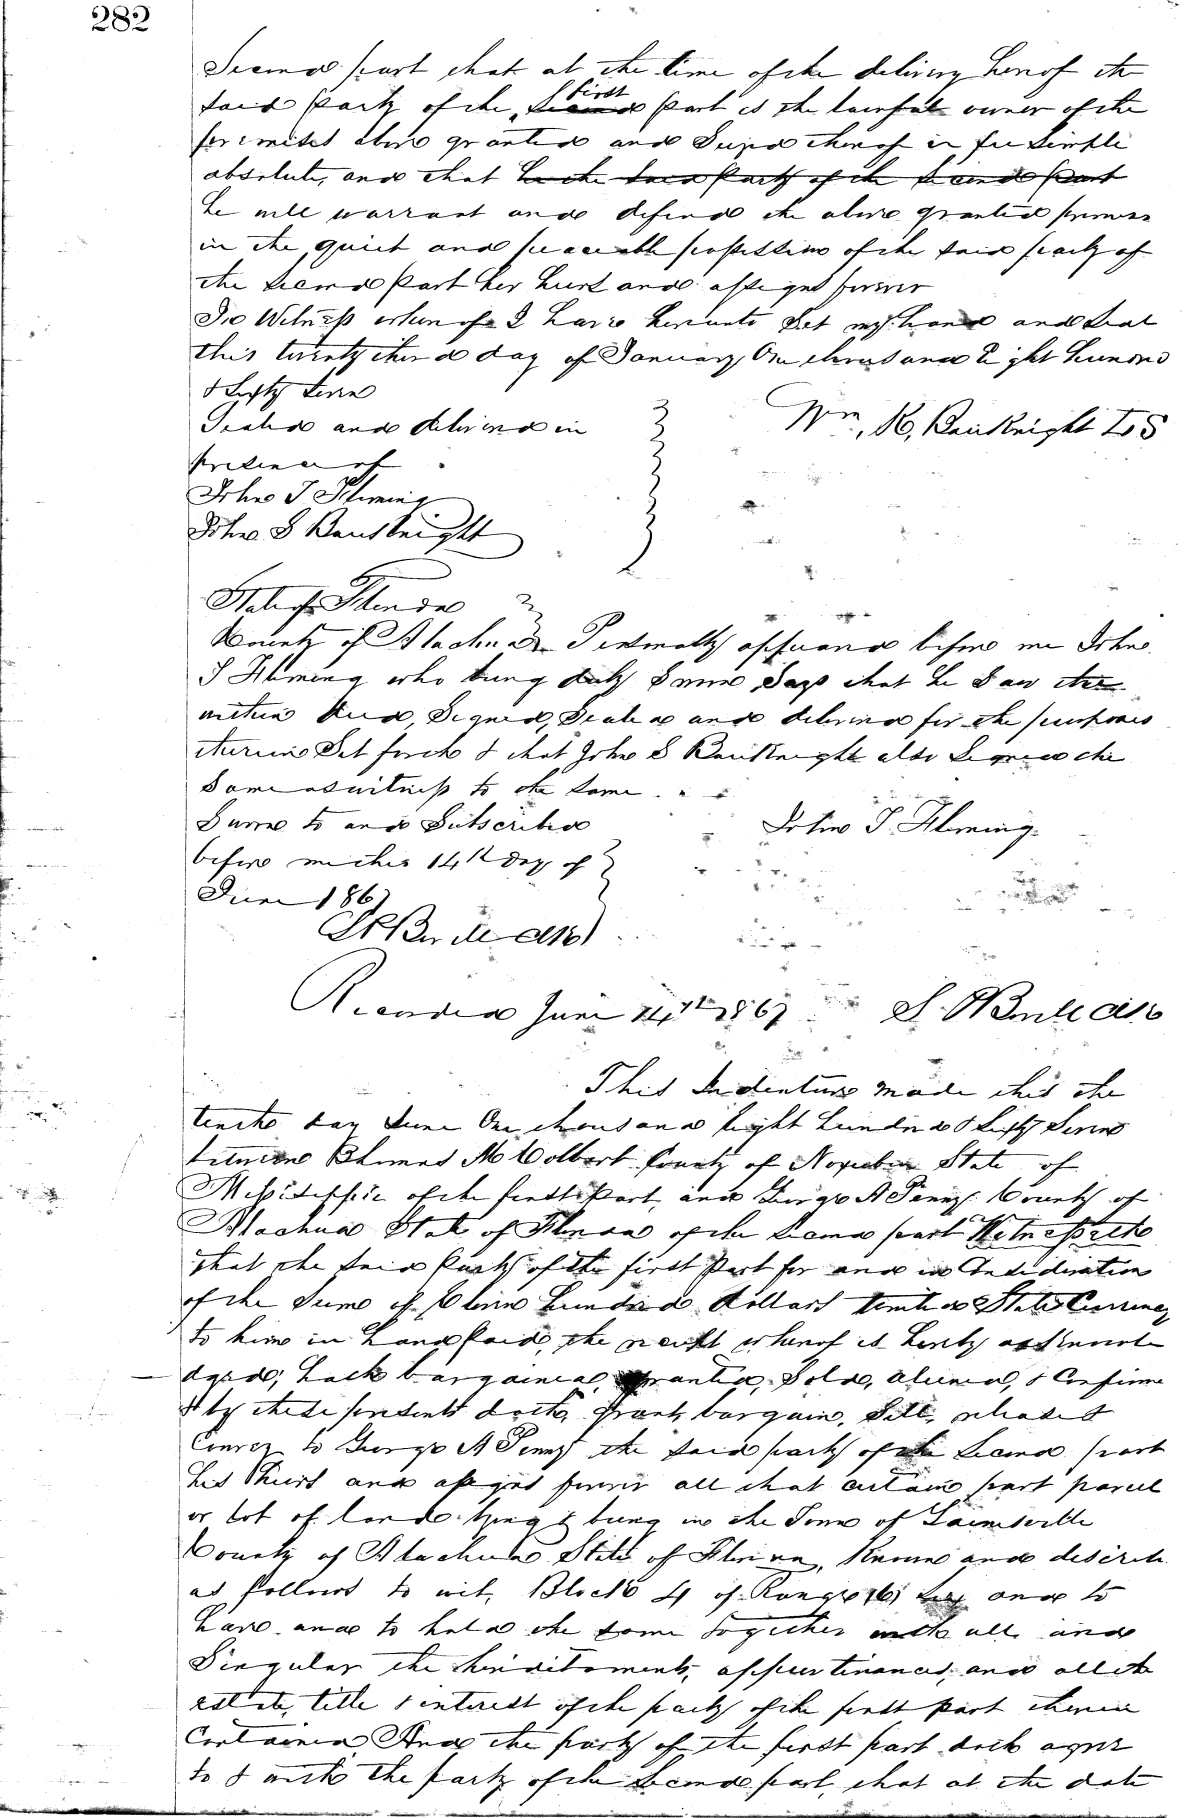 282
Second part that at the time of the delivery hereof the
said party of the first second part is the lawful owner of the
premises above granted and Seized thereof in fee Simple
absolute, and that he the said party of the second part
he will warrant and defend the above granted premises
in the quiet and peaceable possession of the said party of
the second part her heirs and assigns forever
In Witness whereof I have hereunto Set my hand and seal
this twenty third day of January One thousand Eight hundred
& Sixty Seven
Sealed and delivered in
presence of
Wm, R, Bauknight LS
John T Fleming
John S Bauknight
State of Florida
County of Alachua Personally appeared before me John
T Fleming who being duly Sworn Says that he Saw the
within deed, Signed, Sealed and delivered for the purposes
therein Set forth & that John S Bauknight also Signed the
Same as witness to the same.
Sworn to and Subscribed
before me this 14th day of
June 1867
John T. Fleming
Recorded June 14th 1867
This Indenture made this the
tenth day June One thousand Eight hundred & Sixty Seven
between Thomas M Colbert County of Noxubee State of
Mississippi of the first Part, and George A Penny County of
Alachua State of Florida of the Second part Witnesseth
that the said Party of the first Part for and in Consideration
of the Sum of Eleven hundred Dollars United States Currency
to him in hand paid, the receipt whereof is hereby acknowle
dged, hath bargained, granted, Sold, aliened, & Confirmed
& by these presents doth, grant, bargain, Sell, release &
Convey to George A Penny the said party of the Second part
his Heirs and assigns forever all that certain part parcel
or lot of land lying & being in the Town of Gainesville
County of Alachua State of Florida, Known and described
as follows to wit, Block 4 of Range (6) Six and to
have and to hold the same together with all and
Singular the hereditaments, appurtinances, and all the
estate, title & interest of the party of the first part therein
Contained And the party of the first part doth agree
to & with the party of the Second part, that at the date